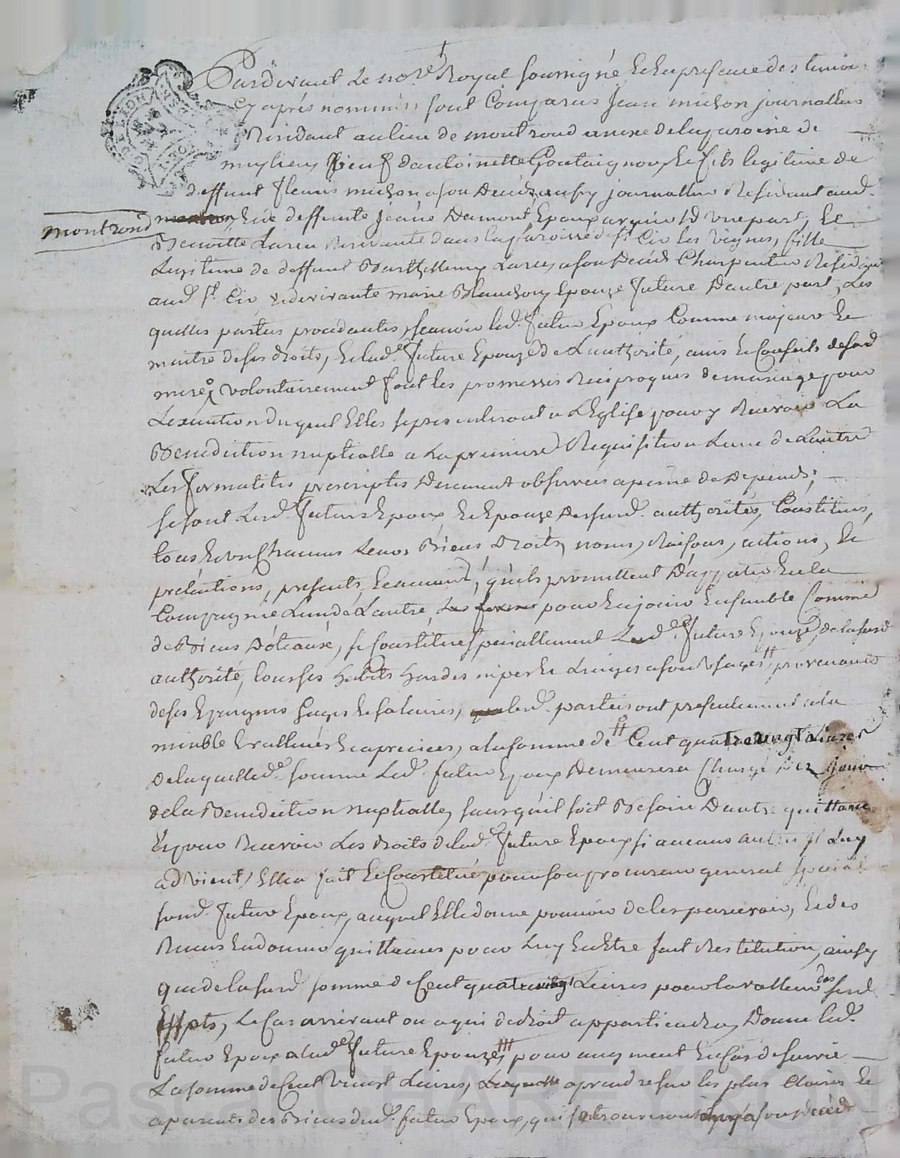 Pardevant Le no.re Royal soussigné et en presence des temoins
cy apres nommés sont Comparus Jean michon journallier
Residant au lieu de montrond annexe de la paroisse de
meylieu, veuf d'antoinette et fils legitime de
deffunt fleury michon a son deces journallier Residant aud.
montrond
et de deffunte Jeanne Dumont Epoux avenir d'une part, Et
Benoitte Larey Residante dans la paroisse de St. Cir les vignes, fille
Legitime de deffunt Barthellemy Larey a son deces Charpentier Resid.
aud. St. Cir et de vivante marie Epouze future D'autre part, Les
quelles parties procedantes, sçavoir led. futur Epoux Comme majeur et
maitre de ses droits, et lad. future Epouze de L'authorité, avis et Conseils de sad.
mere, volontairement font les promesses Reciproques de mariage pour
L'execution duquel Elles se presenteront a L'Eglise pour y Recevoir La
Benediction nuptialle a La premiere Requisition L'une de L'autre
Les formalités prescriptes Deument observées a peine de Depends;
se sont Lesd. futurs Epoux et Epouze Desusd. authorités, Constitués,
tous et un Chacuns Leurs Biens Droits, noms, Raisons, actions, et
pretentions, presents, et avenir, qu'ils promettent D'apporter en la
Compagnie L'un de L'autre, pour En jouir Ensemble Comme
de Biens Dotaux, se Constitue specialement Lad. future Epouze, de la susd.
authorité, tous ses habits hardes nipes et Linges a son Usage provenants
de ses Epargnes Gages et salaires, lesd. parties ont presentement a la
miable Evalluées et apreciées, a la somme de Cent quatrevingt Livres
de laquelle d. somme Led. futur Epoux Demeurera Chargé Des jour
de la Benediction nuptialle, sans qu'il soit Besoin D'autre quittance
Et pour Recevoir Les droits de lad. future Epouze si aucuns autres Luy
adviennent Elle a fait et Constitué pour son procureur general special
sond. futur Epoux, auquel Elle donne pouvoir de les percevoir, et des
Recus En donner quittances pour Luy En Etre fait Restitution, ainsy
que de la susd. somme de Cent quatrevingt Livres pour la valleur des susd.
Effets, Le Cas arrivant ou a qui de droit appartiendra, Donne led.
futur Epoux a lad. future Epouze, pour augment En Cas de survie
La somme de Cent vingt Livres, Laquelle a prendre sur les plus Claires et
aparents des Biens dud. futur Epoux, qui se trouveront a son deces
Pascal CHAREYRON